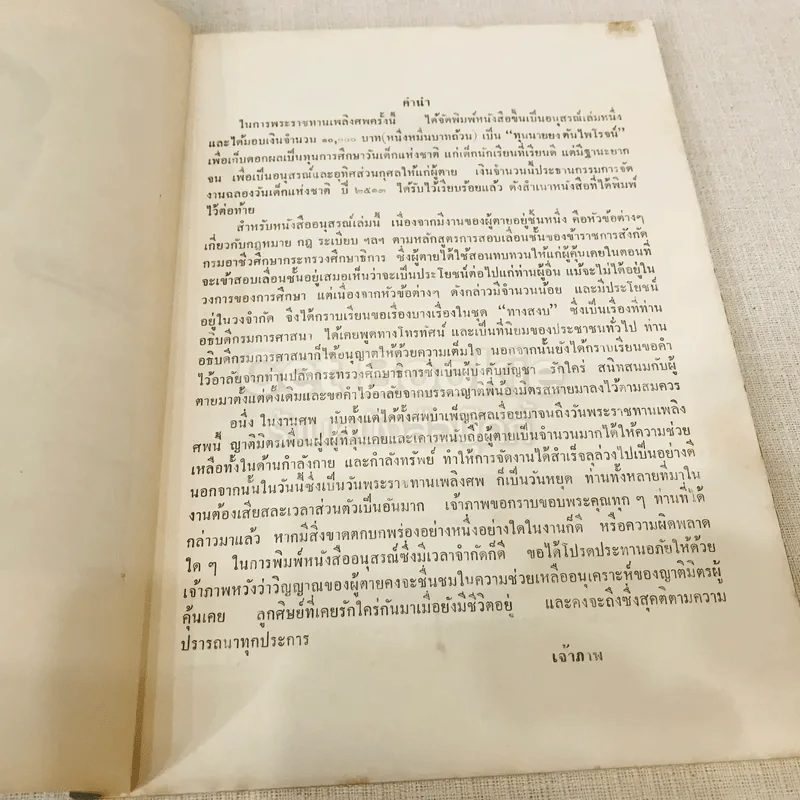 คำนำ
ในการพระราชทานเพลิงศพครั้งนี้ ได้จัดพิมพ์หนังสือขึ้นเป็นอนุสรณ์เล่มหนึ่ง
และได้มอบเงินจำนวน ๑๐,๐๐๐ บาท (หนึ่งหมื่นบาทถ้วน) เป็น “ทุนนายยง ตันไพโรจน์”
เพื่อเก็บดอกผลเป็นทุนการศึกษาวันเด็กแห่งชาติ แก่เด็กนักเรียนที่เรียนดี แต่มีฐานะยาก
จน เพื่อเป็นอนุสรณ์และอุทิศส่วนกุศลให้แก่ผู้ตาย เงินจำนวนนี้ประธานกรรมการจัด
งานฉลองวันเด็กแห่งชาติ ปี ๒๕๑๓ ได้รับไว้เรียบร้อยแล้ว ดังสำเนาหนังสือที่ได้พิมพ์
ไว้ต่อท้าย
สำหรับหนังสืออนุสรณ์เล่มนี้ เนื่องจากมีงานของผู้ตายอยู่ชิ้นหนึ่ง คือหัวข้อต่างๆ
เกี่ยวกับกฎหมาย กฎ ระเบียบ ฯลฯ ตามหลักสูตรการสอบเลื่อนชั้นของข้าราชการสังกัด
กรมอาชีวศึกษากระทรวงศึกษาธิการ ซึ่งผู้ตายได้ใช้สอนทบทวนให้แก่ผู้คุ้นเคยในตอนที่
จะเข้าสอบเลื่อนชั้นอยู่เสมอเห็นว่าจะเป็นประโยชน์ต่อไปแก่ท่านผู้อื่น แม้จะไม่ได้อยู่ใน
วงการของการศึกษา แต่เนื่องจากหัวข้อต่างๆ ดังกล่าวมีจำนวนน้อย และมีประโยชน์
อยู่ในวงจำกัด จึงได้กราบเรียนขอเรื่องบางเรื่องในชุด “ทางสงบ” ซึ่งเป็นเรื่องที่ท่าน
อธิบดีกรมการศาสนา ได้เคยพูดทางโทรทัศน์ และเป็นที่นิยมของประชาชนทั่วไป ท่าน
อธิบดีกรมการศาสนาก็ได้อนุญาตให้ด้วยความเต็มใจ นอกจากนั้นยังได้กราบเรียนขอคำ
ไว้อาลัยจากท่านปลัดกระทรวงศึกษาธิการซึ่งเป็นผู้บังคับบัญชา รักใคร่ สนิทสนมกับผู้
ตายมาตั้งแต่ดั้งเดิมและขอคำไว้อาลัยจากบรรดาญาติพี่น้องมิตรสหายมาลงไว้ตามสมควร
อนึ่ง ในงานศพ นับตั้งแต่ได้ตั้งศพบำเพ็ญกุศลเรื่อยมาจนถึงวันพระราชทานเพลิง
ศพนี้ ญาติมิตรเพื่อนฝูงผู้ที่คุ้นเคยและเคารพนับถือผู้ตายเป็นจำนวนมากได้ให้ความช่วย
เหลือทั้งในด้านกำลังกาย และกำลังทรัพย์ ทำให้การจัดงานได้สำเร็จลุล่วงไปเป็นอย่างดี
นอกจากนั้นในวันนี้ซึ่งเป็นวันพระราชทานเพลิงศพ ก็เป็นวันหยุด ท่านทั้งหลายที่มาใน
งานต้องเสียสละเวลาส่วนตัวเป็นอันมาก เจ้าภาพขอกราบขอบพระคุณทุก ๆ ท่านที่ได้
กล่าวมาแล้ว หากมีสิ่งขาดตกบกพร่องอย่างหนึ่งอย่างใดในงานก็ดี หรือความผิดพลาด
ใด ๆ ในการพิมพ์หนังสืออนุสรณ์ซึ่งมีเวลาจำกัดก็ดี ขอได้โปรดประทานอภัยให้ด้วย
เจ้าภาพหวังว่าวิญญาณของผู้ตายคงจะชื่นชมในความช่วยเหลืออนุเคราะห์ของญาติมิตรผู้
คุ้นเคย ลูกศิษย์ที่เคยรักใคร่กันมาเมื่อยังมีชีวิตอยู่ และคงจะถึงซึ่งสุคติตามความ
ปรารถนาทุกประการ
เจ้าภาพ